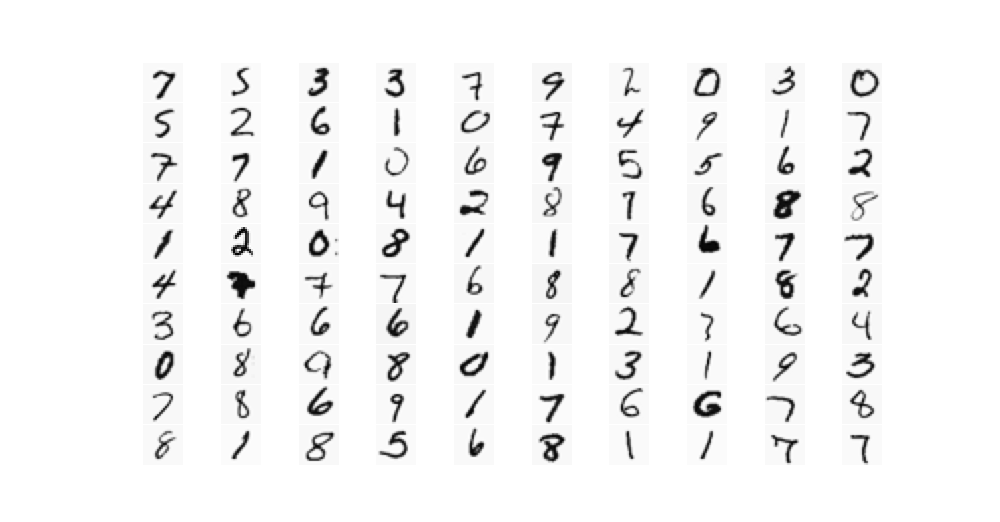 7 5 3 3 7 9 2 0 3 0
5 2 6 1 0 7 4 9 1 7
7 7 1 0 6 9 5 5 6 2
4 8 9 4 2 8 1 6 8 8
1 2 0 8 1 1 7 6 7 7
4 7 7 6 8 8 1 8 2
3 6 6 6 1 9 2 6 4
0 8 9 8 0 1 3 1 9 3
7 8 6 9 1 7 6 6 7 8
8 1 8 5 6 8 1 1 7 7